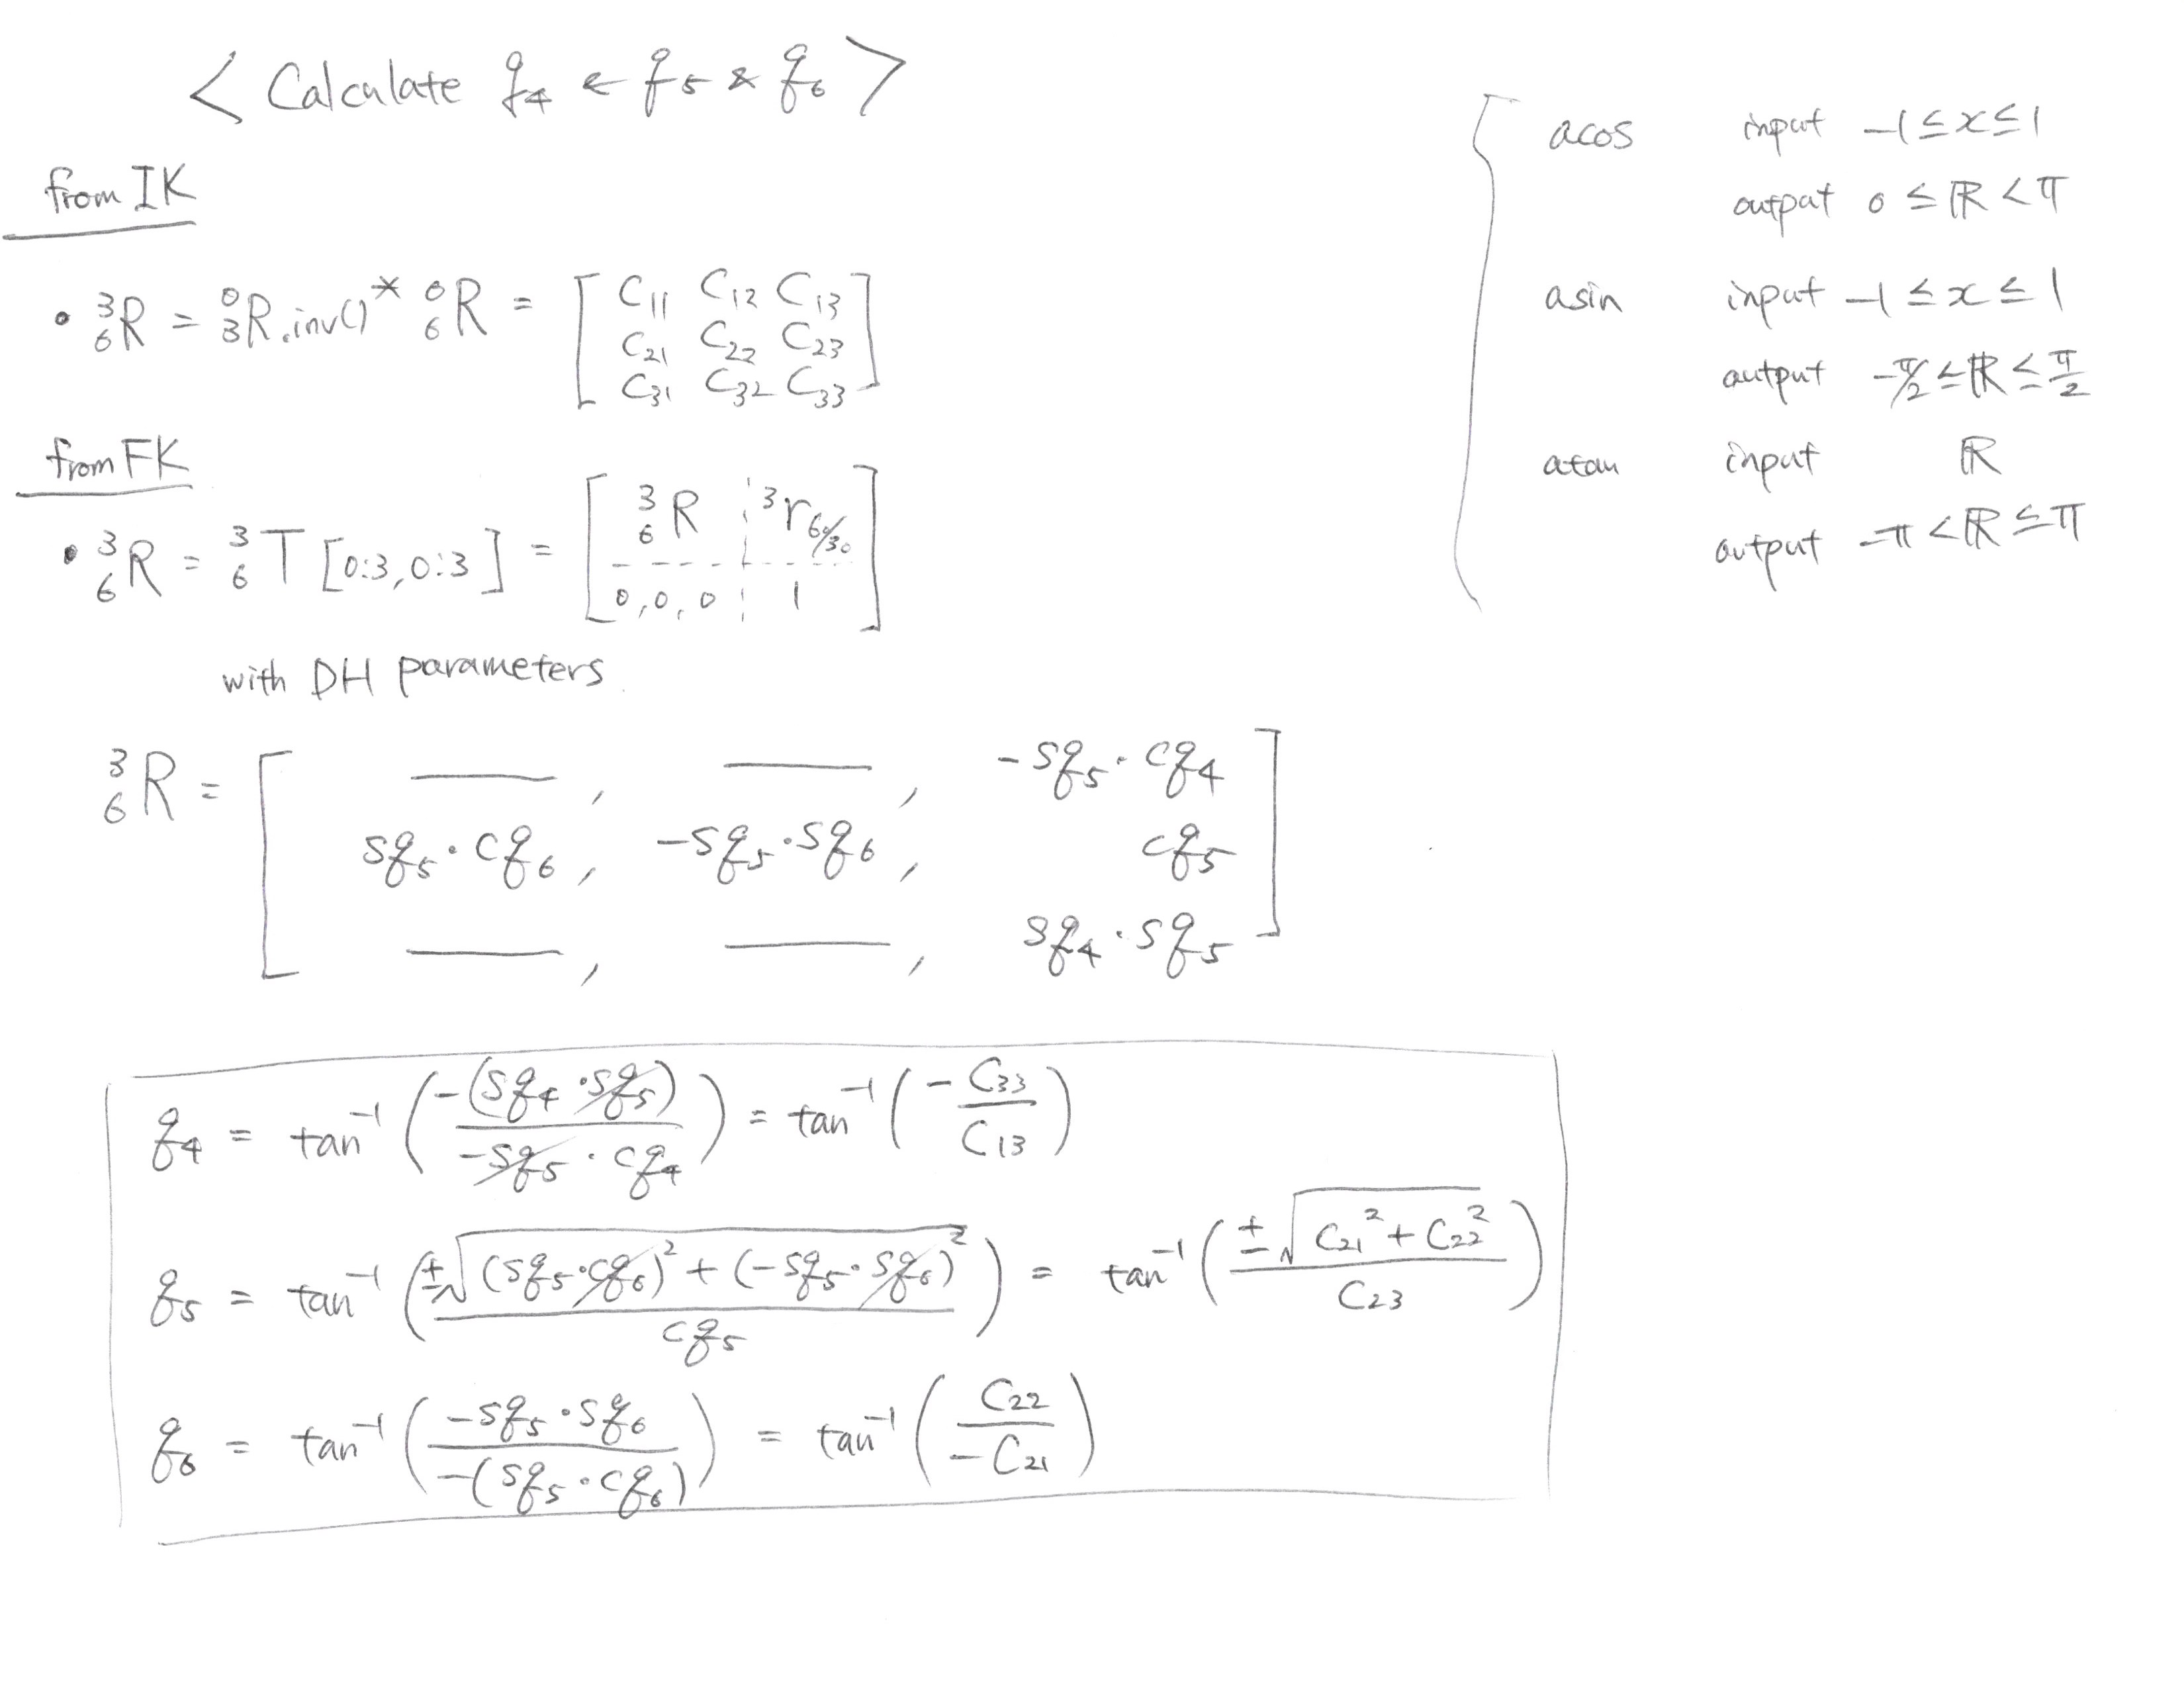 < Calculate q4 ← q5 & q6 >
from IK
• ³₆R = ⁰₃R.inv() * ⁰₆R = [ C11 C12 C13
C21 C22 C23
C31 C32 C33 ]
from FK
• ³₆R = ³₆T [0:3, 0:3] = [ ³₆R ³r6/30
0, 0, 0 1 ]
with DH parameters.
³₆R = [ — , — , -sq5·cq4
sq5·cq6 , -sq5·sq6 , cq5
— , — , sq4·sq5 ]
q4 = tan⁻¹ ( -(sq4·sq5) / -sq5·cq4 ) = tan⁻¹ ( -C33 / C13 )
q5 = tan⁻¹ ( ±√((sq5·cq6)² + (-sq5·sq6)²) / cq5 ) = tan⁻¹ ( ±√(C21² + C22²) / C23 )
q6 = tan⁻¹ ( -sq5·sq6 / -(sq5·cq6) ) = tan⁻¹ ( C22 / -C21 )
acos input -1 ≤ x ≤ 1
output 0 ≤ ℝ < π
asin input -1 ≤ x ≤ 1
output -π/2 ≤ ℝ ≤ π/2
atan input ℝ
output -π < ℝ ≤ π